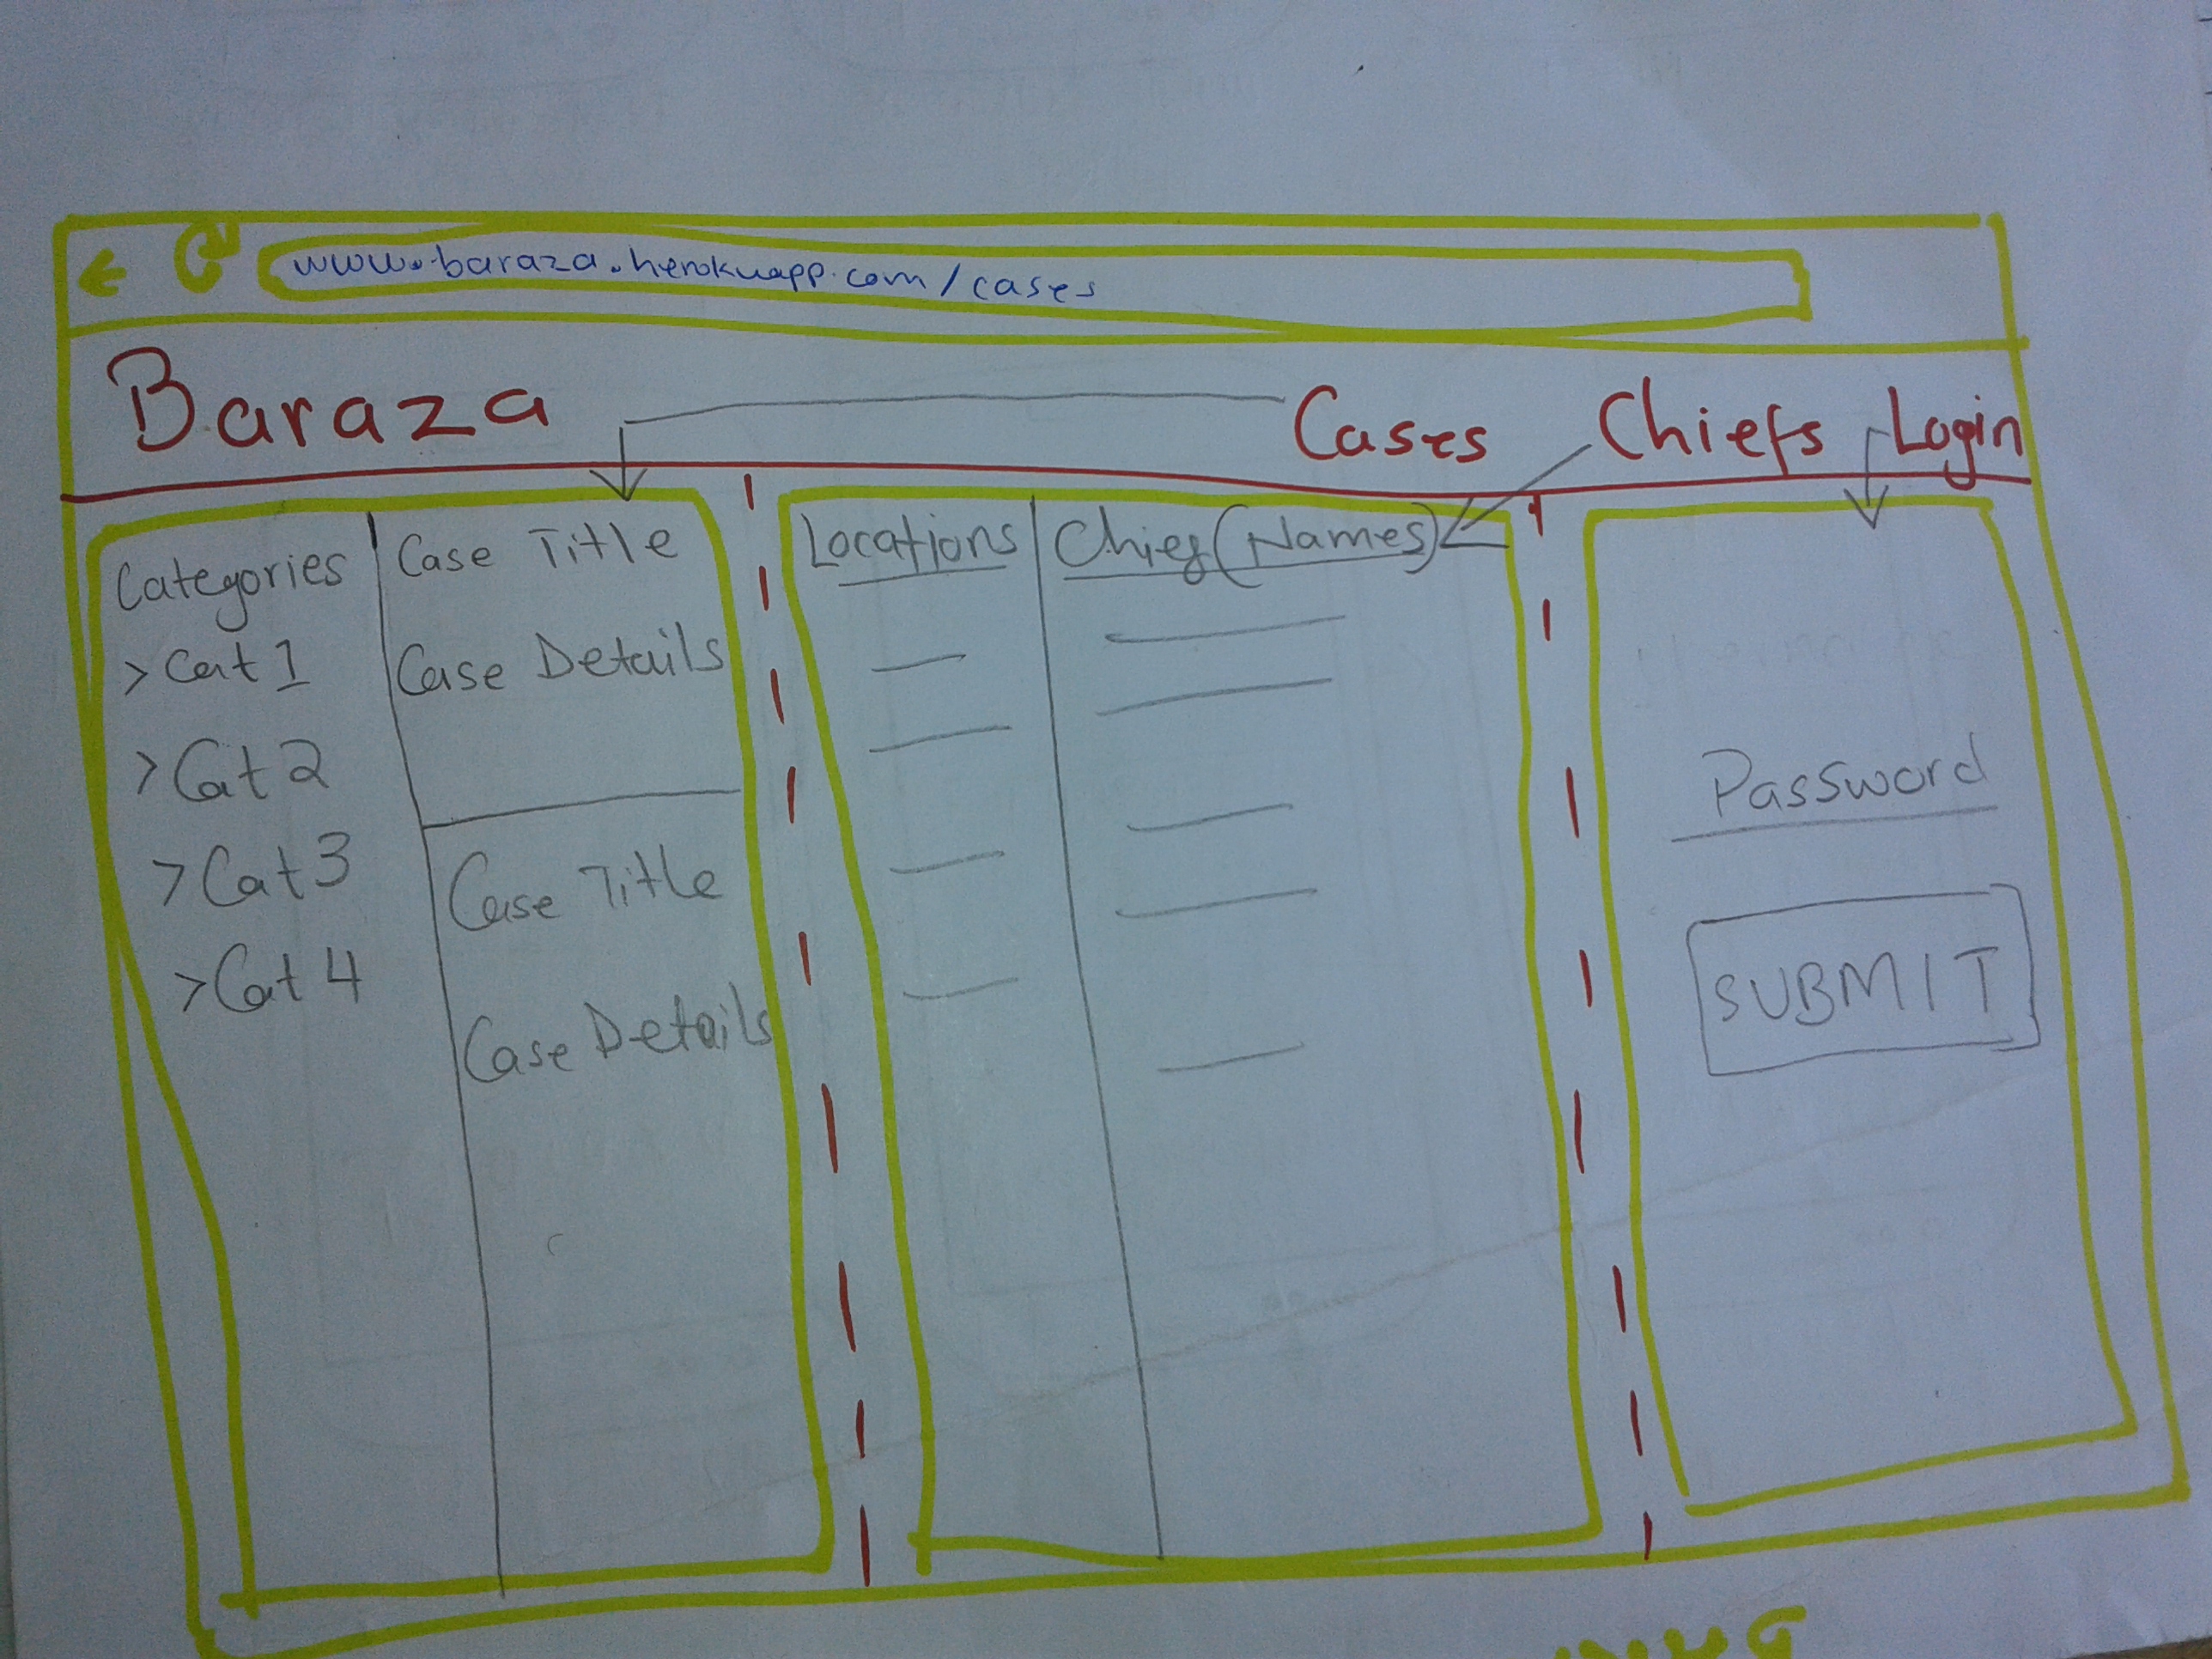 www.baraza.herokuapp.com/cases
Baraza
Cases Chiefs Login
Categories
> Cat 1
> Cat 2
> Cat 3
> Cat 4
Case Title
Case Details
Case Title
Case Details
Locations
Chief (Names)
Password
SUBMIT